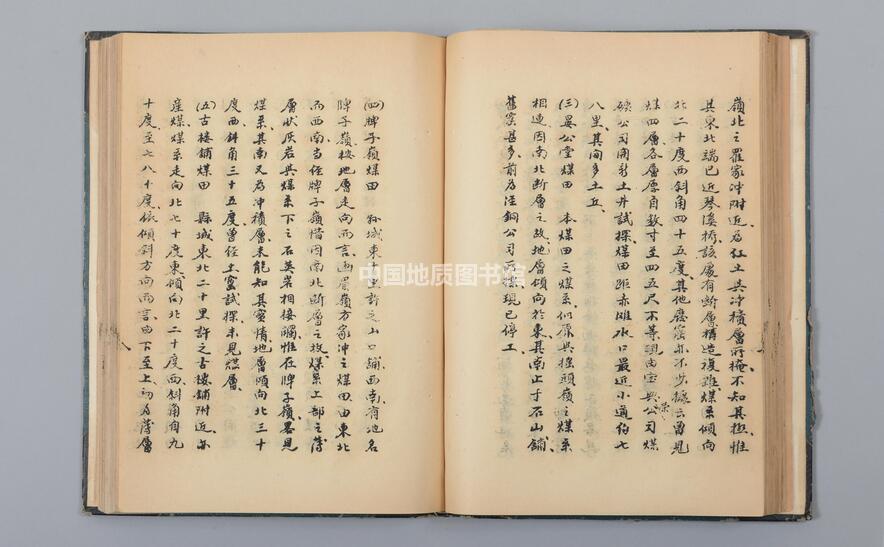 嶺北之羅家冲附近、為紅土與冲積層所掩、不知其極、惟
其東北端已近琴溪橋、該處有斷層、構造複雜、煤系傾向
北二十度西、斜角四十五度、其他廢窿亦不少、據云曾見
煤四層、各層厚自数寸至四五尺不等、現由宝興公司煤
榮
礦公司開新土井試探、煤田距赤灘水口最近、小道約七
八里、其间多土丘、
(三)晏公堂煤田 本煤田之煤系似原與搖頭嶺之煤系
相連、因南北斷層之故、地層傾向於東、其南止于石山舖、
舊窯甚多、前為涇銅公司所採、現已停工、
(四)牌子嶺煤田 縣城東十里許之山口舖西南有地名
牌子嶺、按地層走向而言、画眉嶺方家冲之煤田、由東北
而西南、当经牌子嶺、惜因南北断層之故、煤系上部之薄
層狀灰岩與煤系下之石英岩相接觸、惟在牌子嶺畧見
煤系、其南又為冲積層、未能知其實情、地層傾向北三十
度西、斜角三十五度、曾经土窯試探、未見煤層、
(五)古樓舖煤田 縣城東北二十里許之古樓舖附近亦
産煤、煤系走向北七十度東、傾向北二十度西、斜角自九
十度、至七八十度、依傾斜方向而言、由下至上、初為薄層
中国地质图书馆